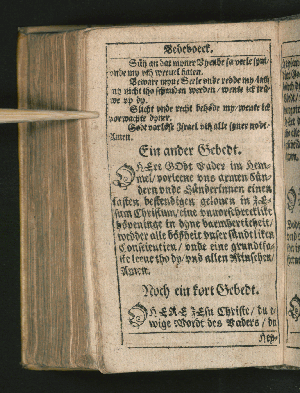 Bedeboeck.
Süh an dat myner Vyende so veele synt/
unde my uth wevel haten.
Beware myne Seele unde redde my/ lath
my nicht tho schanden werden/ wente ick trü-
we up dy.
Slicht unde recht behöde my/ wente ick
vorwachte dyner.
Godt vorlöse Israel uth alle syner nodt.
Amen.
Ein ander Gebedt.
HErr GOdt Vader im Hem-
mel/ vorleene uns armen Sün-
dern unde Sünderinnen einen
fasten bestendigen geloven in JE-
sum Christum/ eine unvorschreckliche
höpeninge in dyne barmherticheit/
wedder alle bößheit unser sündtliken
Conscientien/ unde eine grundtfa-
ste leeve tho dy/ und allen Minschen/
Amen.
Noch ein kort Gebedt.
HERE JEsu Christe/ du e-
wige Wordt des Vaders/ du
Hey-